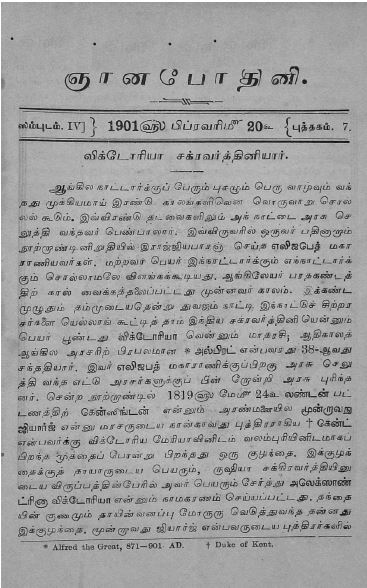 ஞானபோதினி.
ஸம்புடம். IV] } 1901௵ பிப்ரவரி௴ 20௳ { புத்தகம். 7.
விக்டோரியா சக்ரவர்த்தினியார்.
ஆங்கில நாட்டார்க்குப் பேரும் புகழும் பெரு வாழ்வும் வந்
தது முக்கியமாய் இரண்டு காலங்களிலென வொருவாறு சொல
லல் கூடும். இவ்விரண்டு தடவைகளிலும் அந் நாட்டை அரசு செ
லுத்தி வந்தவர் பெண்பாலார். இவ்விருவரில் ஒருவர் பதினாறாம்
நூற்றாண்டினிறுதியில் இராஜ்யபாரஞ் செய்த எலிஜபெத் மகா
ராணியவர்கள். மற்றவர் பெயர் இந்நாட்டார்க்கும் எந்நாட்டார்க்
கும் சொல்லாமலே விளங்கக்கூடியது. ஆங்கிலேயர் பரதகண்டத்
திற் கால் வைக்கத்தலைப்பட்டது முன்னவர் காலம். இக்கண்ட
முழுதும் தம்முடையதென்று துவஜம் நாட்டி இந்நாட்டுச் சிற்றர
சர்களை யெல்லாங் கூட்டித் தாம் இந்திய சக்ரவர்த்தினியென்னும்
பெயர் பூண்டது விக்டோரியா வென்னும் மாதரசி; ஆதிகாலத்
ஆங்கில அரசரிற் பிரபலமான * அல்பிரட் என்பவரது 38-ஆவது
சந்ததியார். இவர் எலிஜபெத் மகாராணிக்குப்பிறகு அரசு செலு
த்தி வந்த எட்டு அரசர்களுக்குப் பின் றோன்றி அரசு புரிந்த
னர். சென்ற நூற்றாண்டில் 1819௵ மே௴ 24௳ லண்டன் பட்
டணத்திற் கென்ஸிங்டன் என்னும் அரண்மனையில் மூன்றாவது
ஜியார்ஜ் என்னு மரசருடைய நான்காவது புத்திரராகிய † கெண்ட்
என்பவர்க்கு விக்டோரிய மேரியாவினிடம் வலம்புரியினிடமாகப்
பிறந்த முத்தைப் போன்று பிறந்தது ஒரு குழந்தை. இக்குழந்
தைக்குத் தாயாருடைய பெயரும், ருஷியா சக்கிரவர்த்தியினு
டைய விருப்பத்தின்பேரில் அவர் பெயரும் சேர்த்து அலெக்ஸாண்
ட்ரினா விக்டோரியா என்னும் நாமகரணம் செய்யப்பட்டது. தந்தை
யின் குணமும் தாயின்வனப்பு மோருரு வெடுத்துவந்த தன்னது
இக்குழந்தை. மூன்றாவது ஜியார்ஜ் என்பவருடைய புத்திரர்களில்
* Alfred the Great, 871—901 AD. † Duke of Kent.